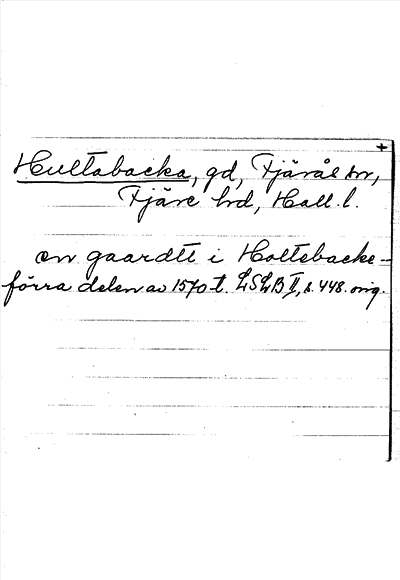 +
Hultabacka, gd, Fjärås sn,
Fjäre hd, Hall. l.
en gaardtt i Holtebacke –
förra delen av 1570 t. LSLB II, s. 448. orig.